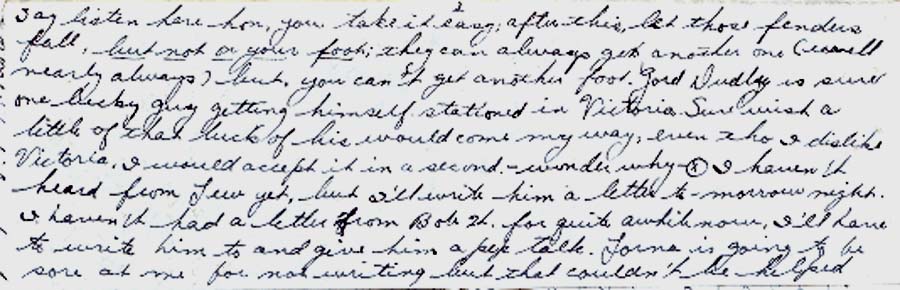 Say listen here hon, you take it easy, after this, let those fenders
fall, but not on your foot; they can always get another one (well
nearly always) but, you can't get another foot. Gord Dudley is sure
one lucky guy getting himself stationed in Victoria. Sure wish a
little of that luck of his would come my way, even tho I dislike
Victoria, I would accept it in a second. - wonder why - ⊗ I haven't
heard from Lew yet, but I'll write him a letter to-morrow night.
I haven't had a letter from Bob H. for quite awhile now, I'll have
to write him to and give him a pep talk. Lorna is going to be
sore at me for not writing but that couldn't be helped